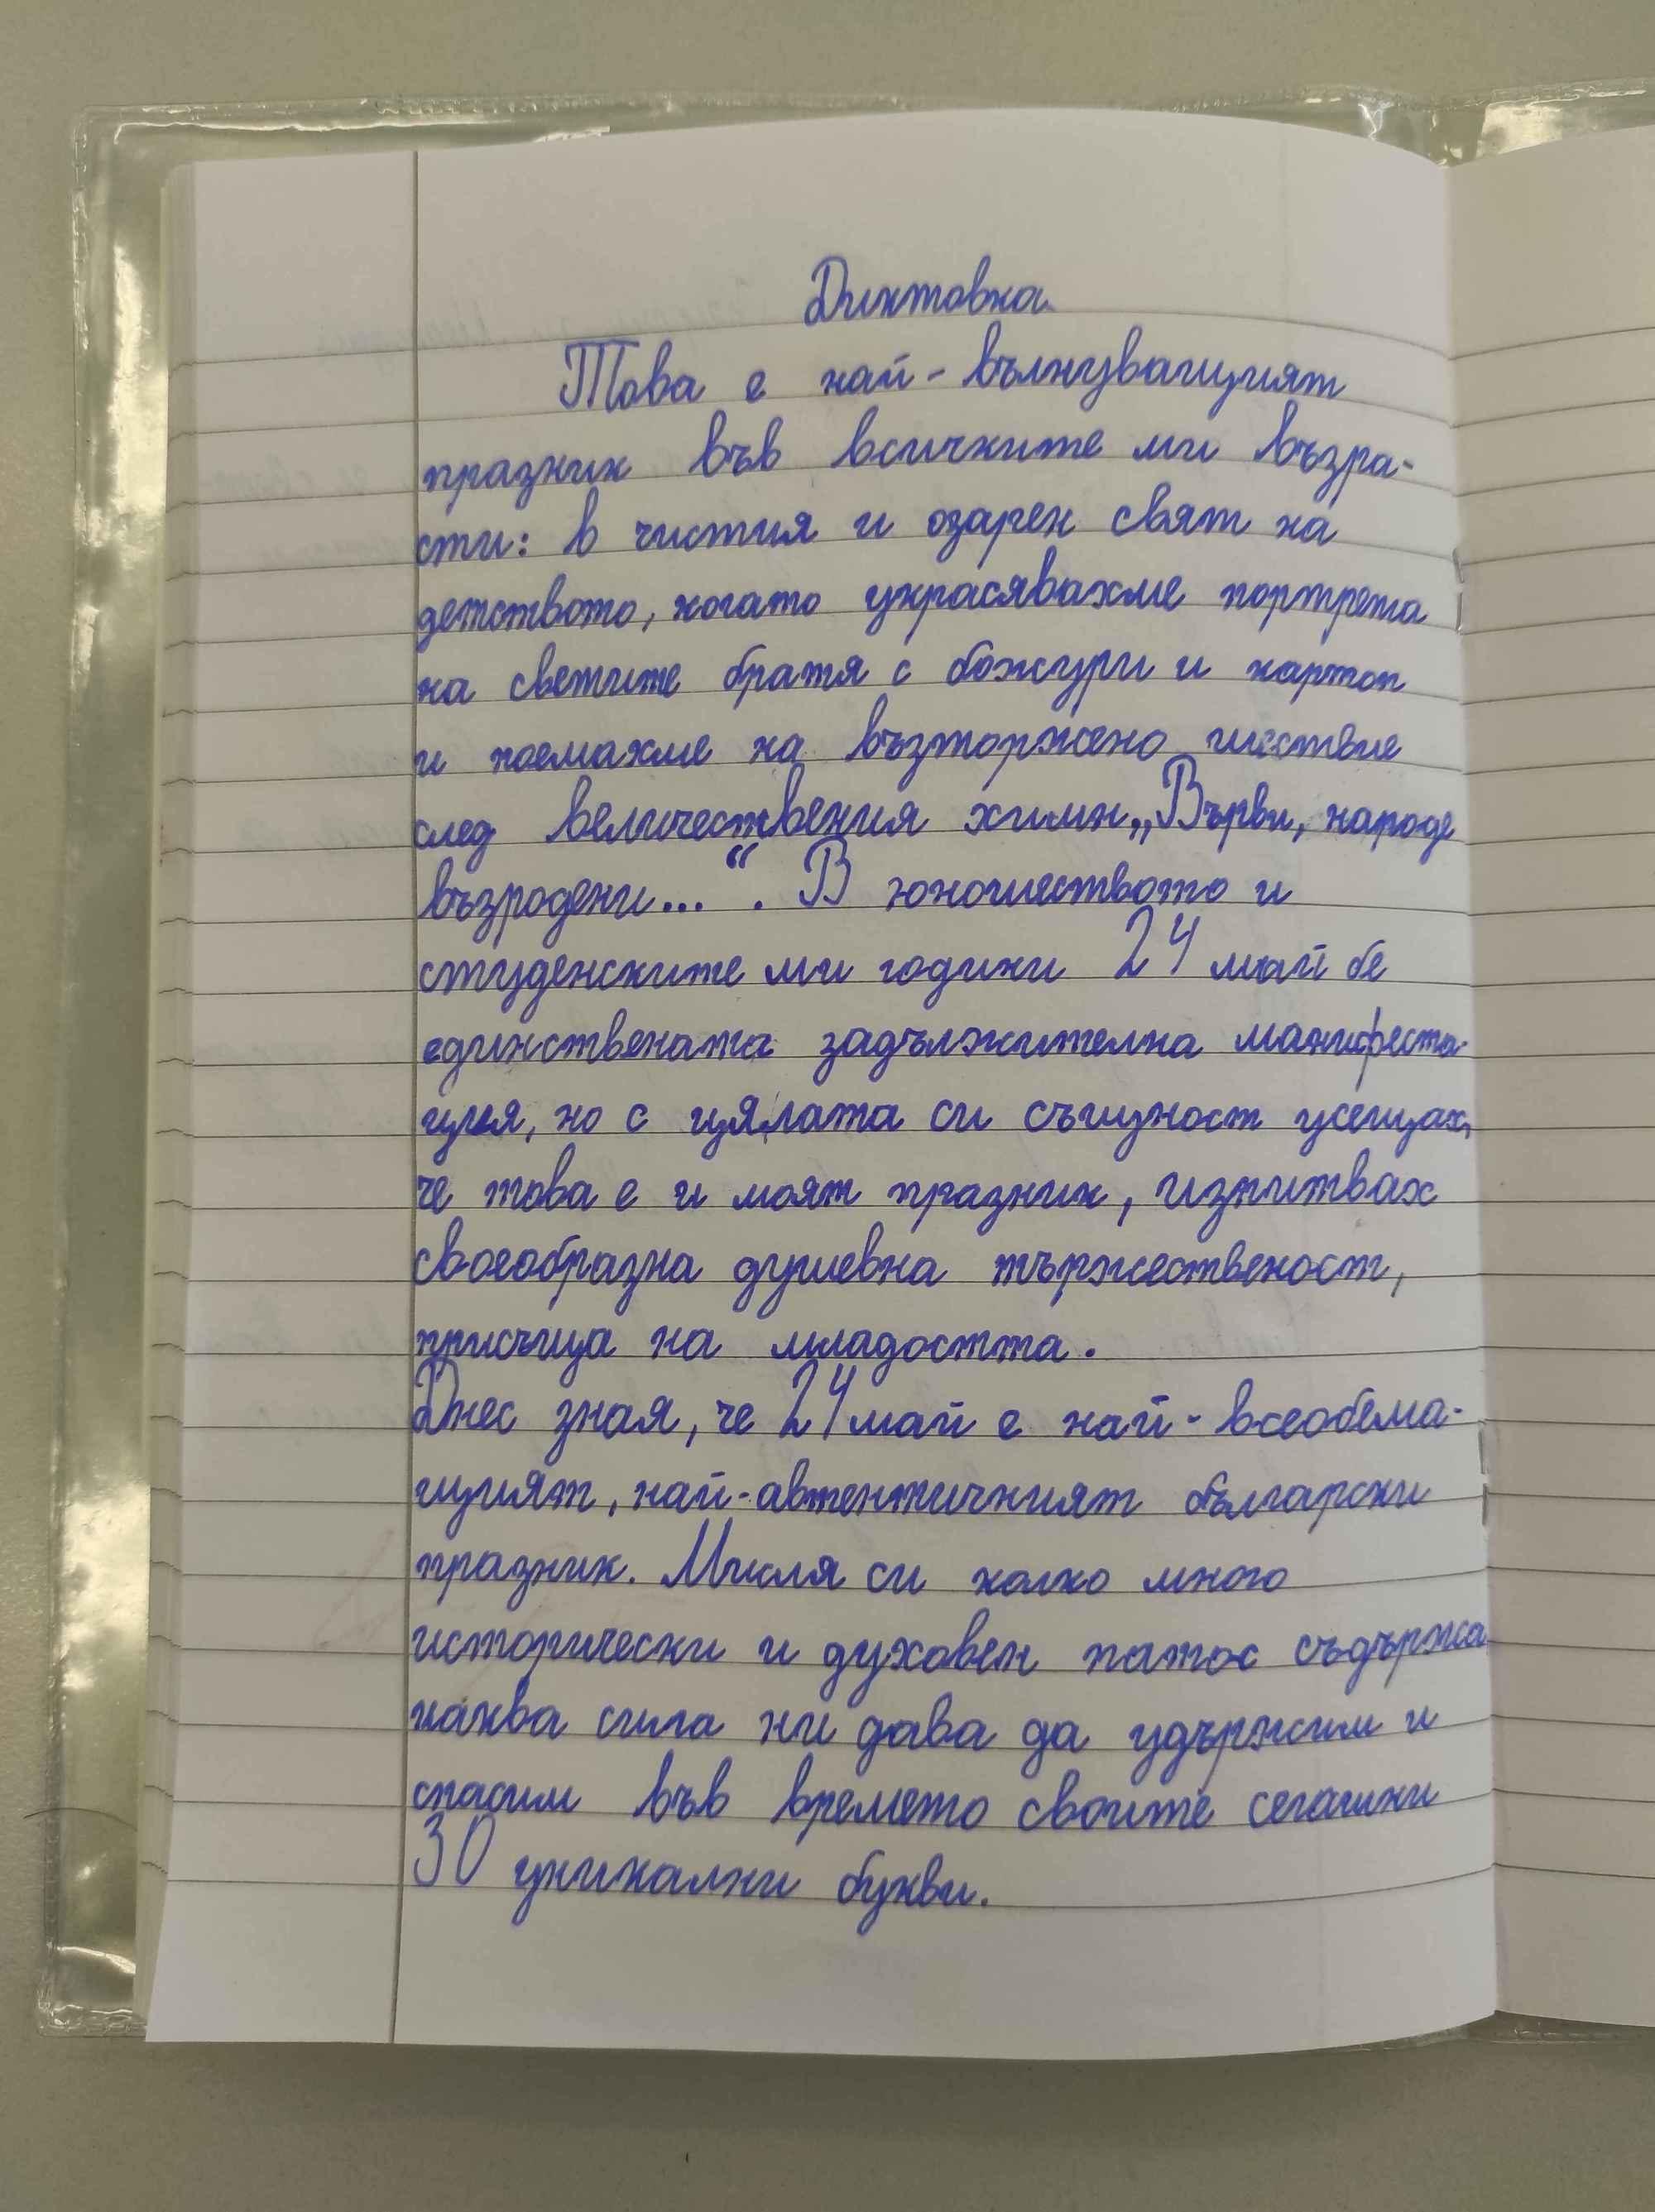 Диктовка
Това е най-вълнуващият
празник във всичките ми възра-
сти: в чистия и озарен свят на
детството, когато украсявахме портрета
на светите братя с божури и картоп
и поемахме на възторжено шествие
след величествения химн „Върви, народе
възродени...“. В юношеството и
студенските ми години 24 май бе
единствената задължителна манифеста-
ция, но с цялата си същност усещах,
че това е и моят празник, изпитвах
своеобразна душевна тържественост,
присъща на младостта.
Днес зная, че 24 май е най-всеобема-
щият, най-автентичният български
празник. Мисля си колко много
исторически и духовен патос съдържа
каква сила ни дава да удържим и
спасим във времето своите сегашни
30 уникални букви.